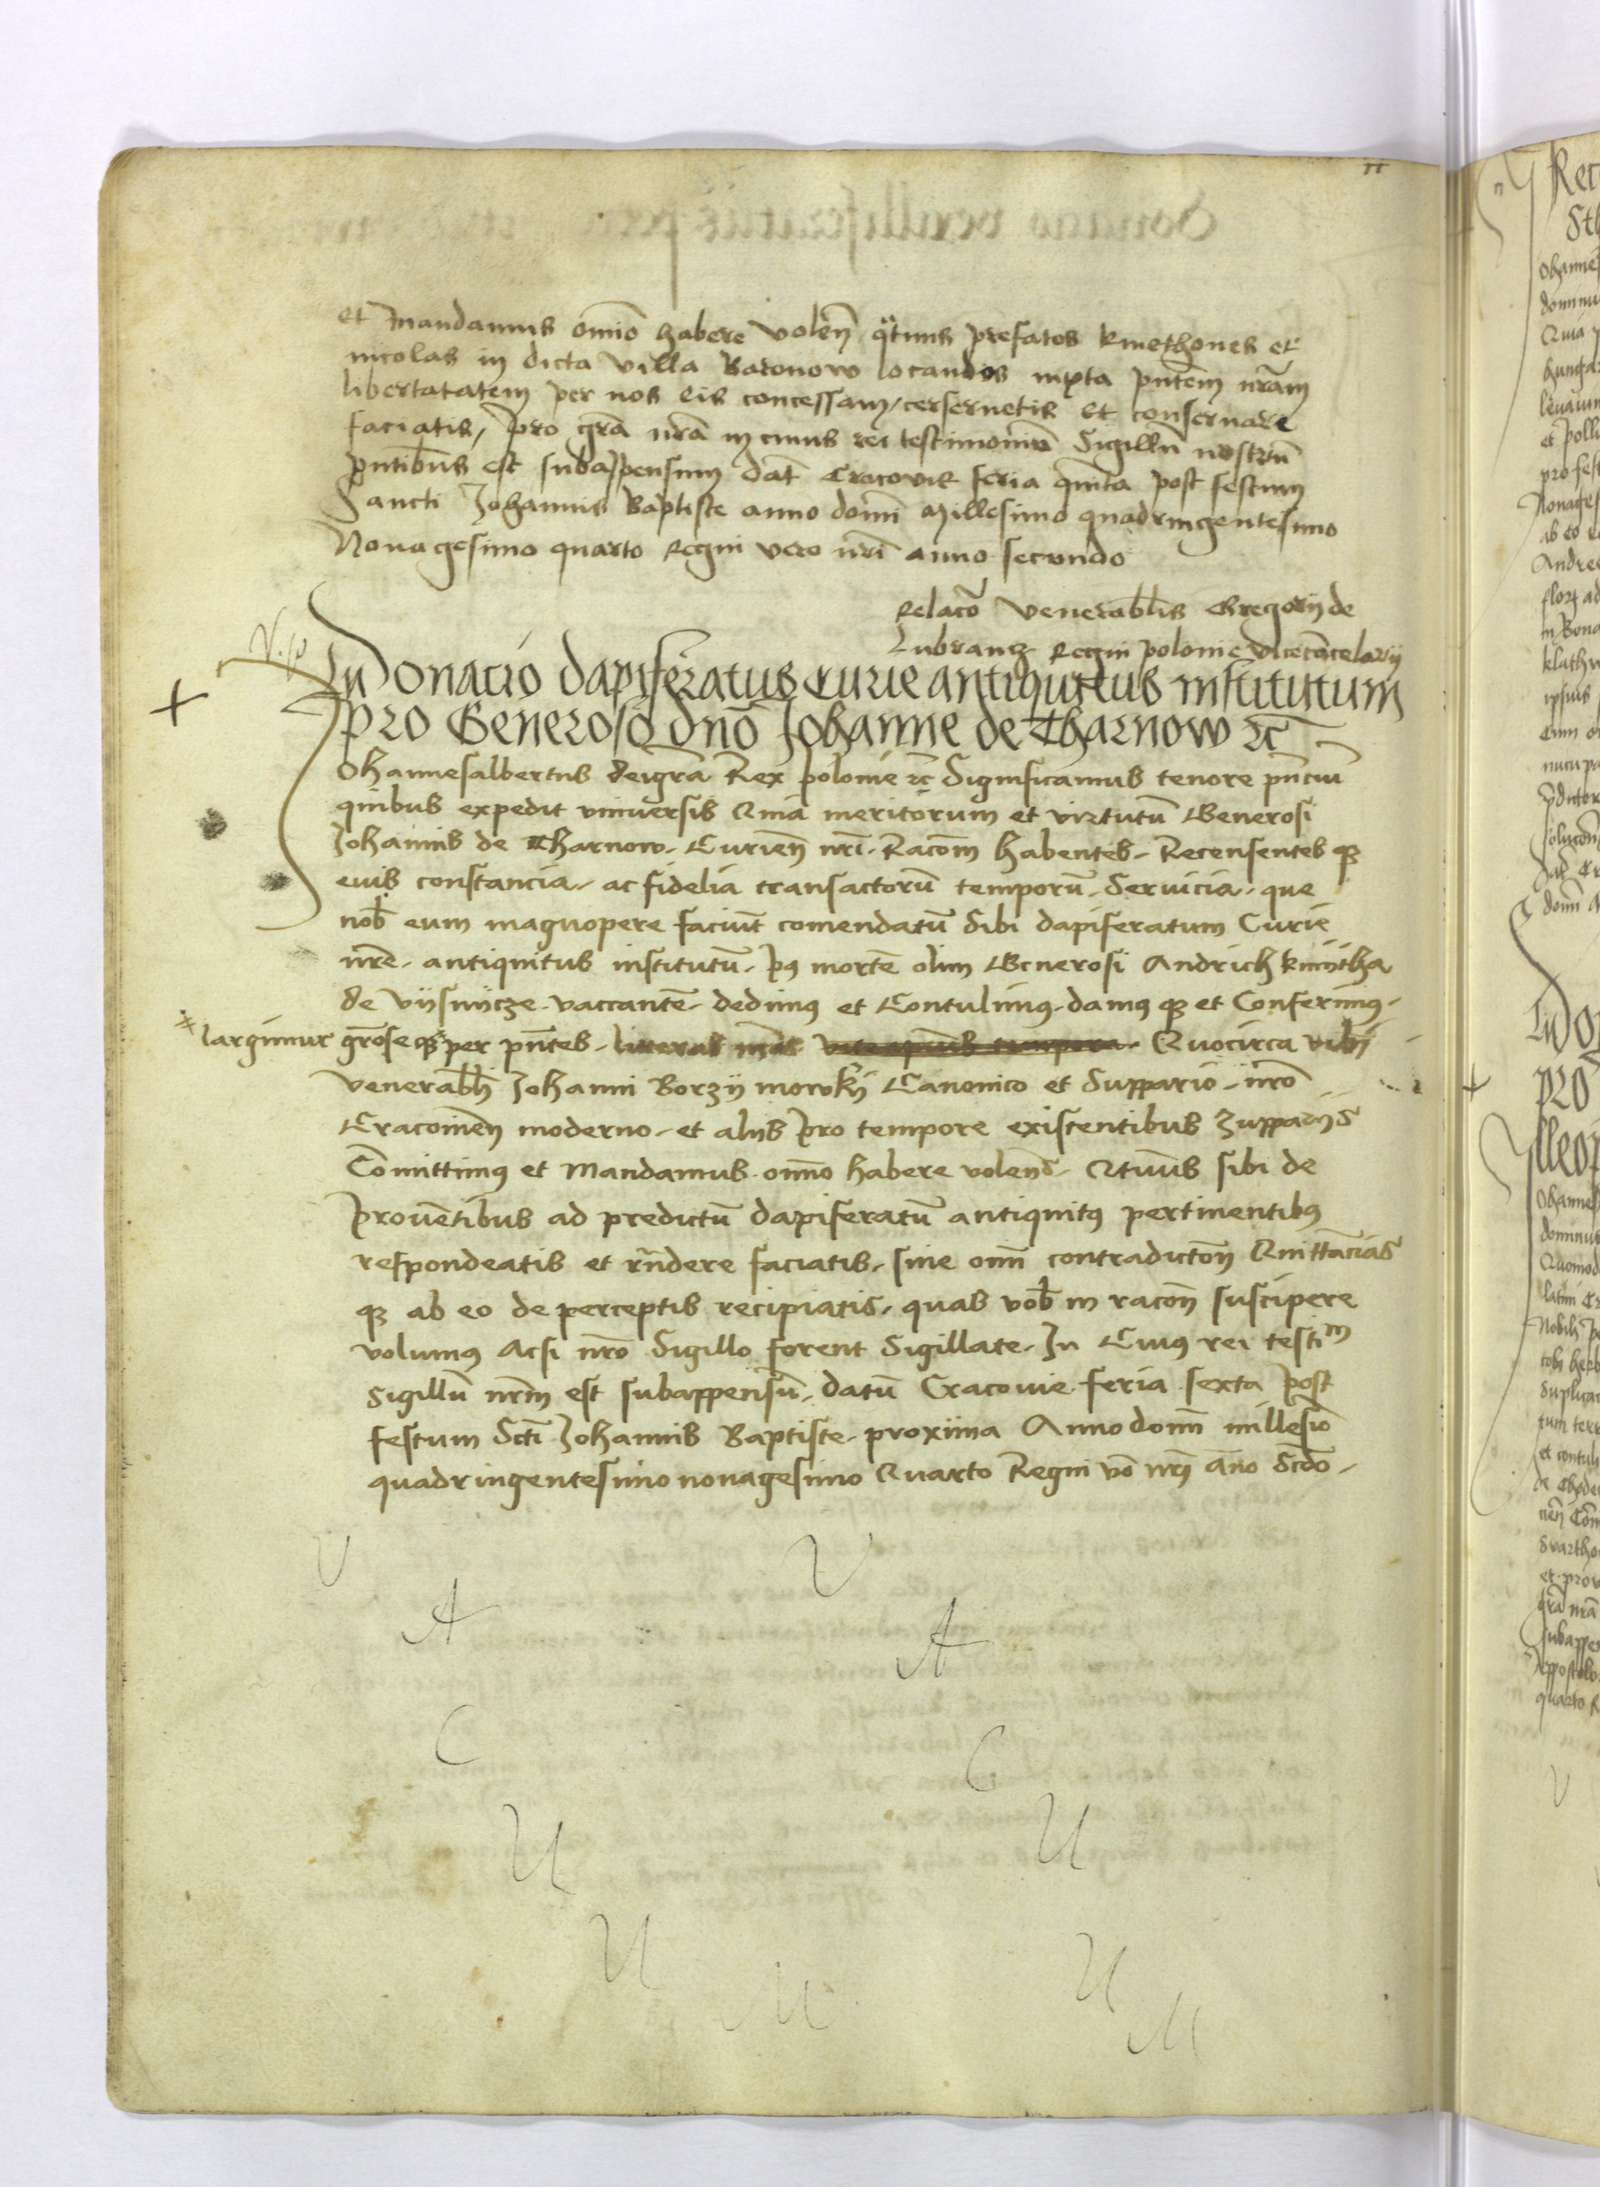 et mandamus omīo habere volen̄ q̄tinus prefatos kmethones et
incolas in dicta villa Baronow locandos iuxta pn̄tem nr̄am
libertatatem per nos eis concessam, cersernetis et conseruare
faciatis, pro gr̄a nr̄a in cuius rei testimoniū Sigillū nostrū
pn̄tibus est subappensum dat̄ Cracovie feria quīta post festum
Sancti Johannis Baptiste anno domī Millesimo quadringentesimo
Nonagesimo quarto Regni vero nr̄i anno secundo
Relacō Venerabl̄is Gregorij de
Lubrancz Regni polonie vicecācelarij
Donacio dapiferatus Curie antiquitus institutum
pro Generoso dn̄o Johanne de Tharnow ꝛc̄
Johannesalbertus deigr̄a Rex polonie ꝛc̄ Significamus tenore pn̄ciū
quibus expedit vniuersis Quia meritorum et virtutū Generosi
Johannis de Tharnow Curien̄ nr̄i Racōm habentes Recensentes qȝ
euis constancia ac fidelia transactorū temporū Seruicia que
nob̄ eum magnopere faciūt comendatū Sibi dapiferatum Curie
nr̄e antiquitus institutū pꝰ mortē olim Generosi Andrich kmijtha
de vijsnijcze vaccantē dedimꝰ et Contulimꝰ damꝰ qȝ et Conferimꝰ
largimur gr̄oseqȝ per pn̄tes literas nr̄as vite ipius tempora Quocirca vobi
venerabl̄i Johanni Borzijmowskij Canonico et Suppario nr̄o
Cracouien̄ moderno et alijs pro tempore existentibus Zupparijs
Comittimꝰ et Mandamus om̄no habere volens Qtinus sibi de
prouentibus ad predictū dapiferatū antiquitꝰ pertinentibꝰ
respondeatis et rn̄dere faciatis sine om̄i contradictōn Quittāncias
qȝ ab eo de perceptis recipiatis quas vob̄ in racon̄ suscipere
volumꝰ Acsi nr̄o Sigillo forent Sigillate In Cuiꝰ rei testim
Sigillū nr̄m est subappensū datū Cracouie feria sexta post
festum Scti Johannis Baptiste proxima Anno domī millesīo
quadringentesimo nonagesimo Quarto Regni vō nr̄i āno Scdo
V V
A A
C C
U U
U U
M M